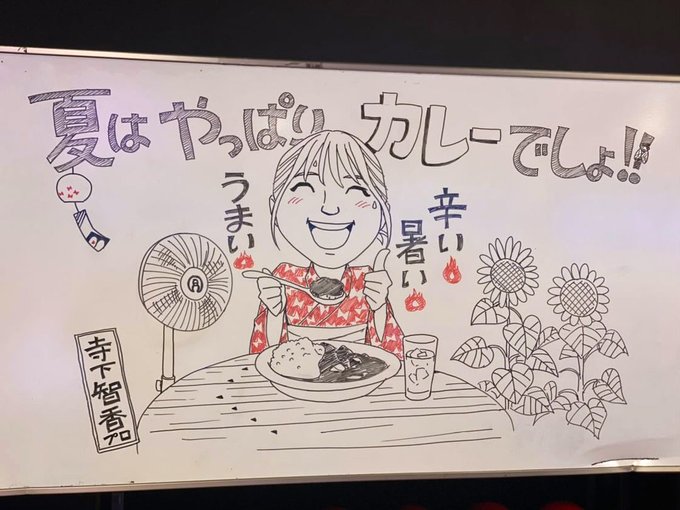 夏はやっぱりカレーでしょ!!
うまい
辛い
暑い
寺下智香プロ